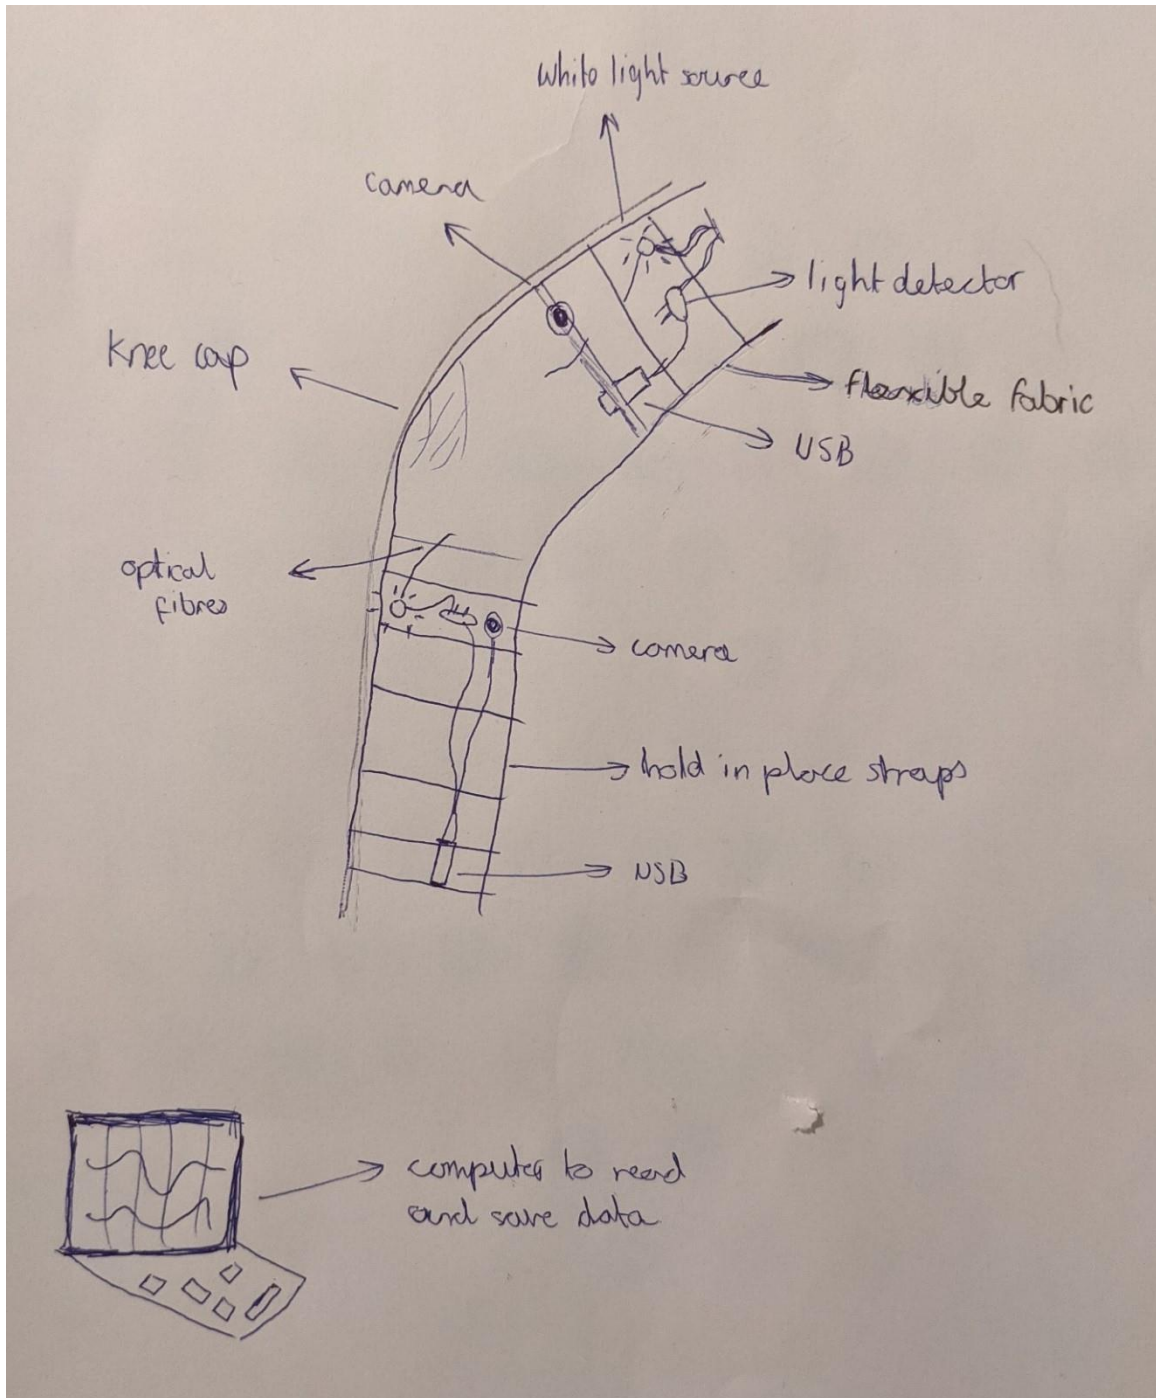 white light source
camera
light detector
knee cap
flexible fabric
USB
optical
fibres
camera
hold in place straps
USB
computer to read
and save data